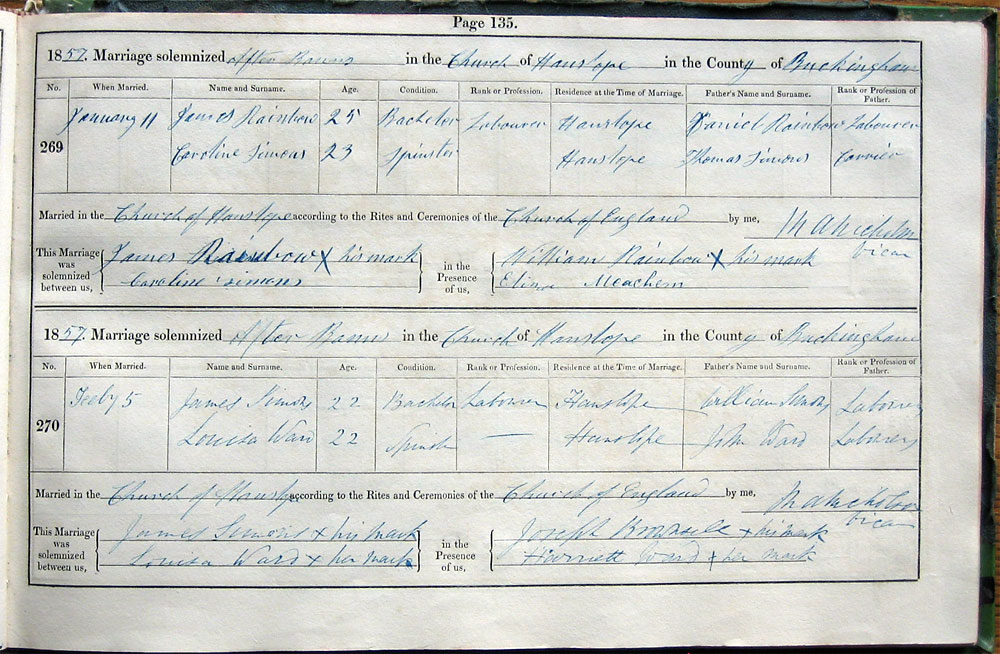 Page 135.
1857. Marriage solemnized After Banns in the Church of Hanslope in the County of Buckingham
No. When Married. Name and Surname. Age. Condition. Rank or Profession. Residence at the Time of Marriage. Father's Name and Surname. Rank or Profession of Father.
269 January 11 James Rainbow 25 Bachelor Labourer Hanslope Daniel Rainbow Labourer
Caroline Simons 23 Spinster Hanslope Thomas Simons Carrier
Married in the Church of Hanslope according to the Rites and Ceremonies of the Church of England by me,
Vicar
This Marriage was solemnized between us, James Rainbow X his mark in the Presence of us, William Rainbow X his mark
Caroline Simons Eliza Meachem
1857. Marriage solemnized After Banns in the Church of Hanslope in the County of Buckingham
No. When Married. Name and Surname. Age. Condition. Rank or Profession. Residence at the Time of Marriage. Father's Name and Surname. Rank or Profession of Father.
270 Feby 5 James Simons 22 Bachelor Labourer Hanslope William Simons Labourer
Louisa Ward 22 Spinster — Hanslope John Ward Labourer
Married in the Church of Hanslope according to the Rites and Ceremonies of the Church of England by me,
Vicar
This Marriage was solemnized between us, James Simons x his mark in the Presence of us, Joseph x his mark
Louisa Ward x her mark Harriett Ward x her mark